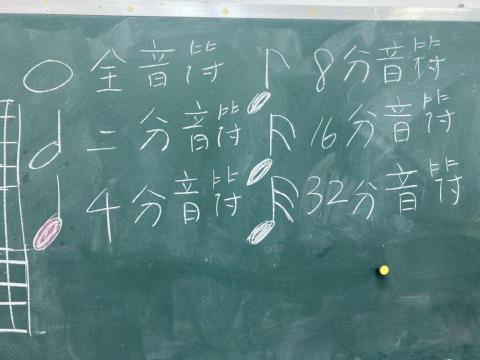 全音符
二分音符
4分音符
8分音符
16分音符
32分音符